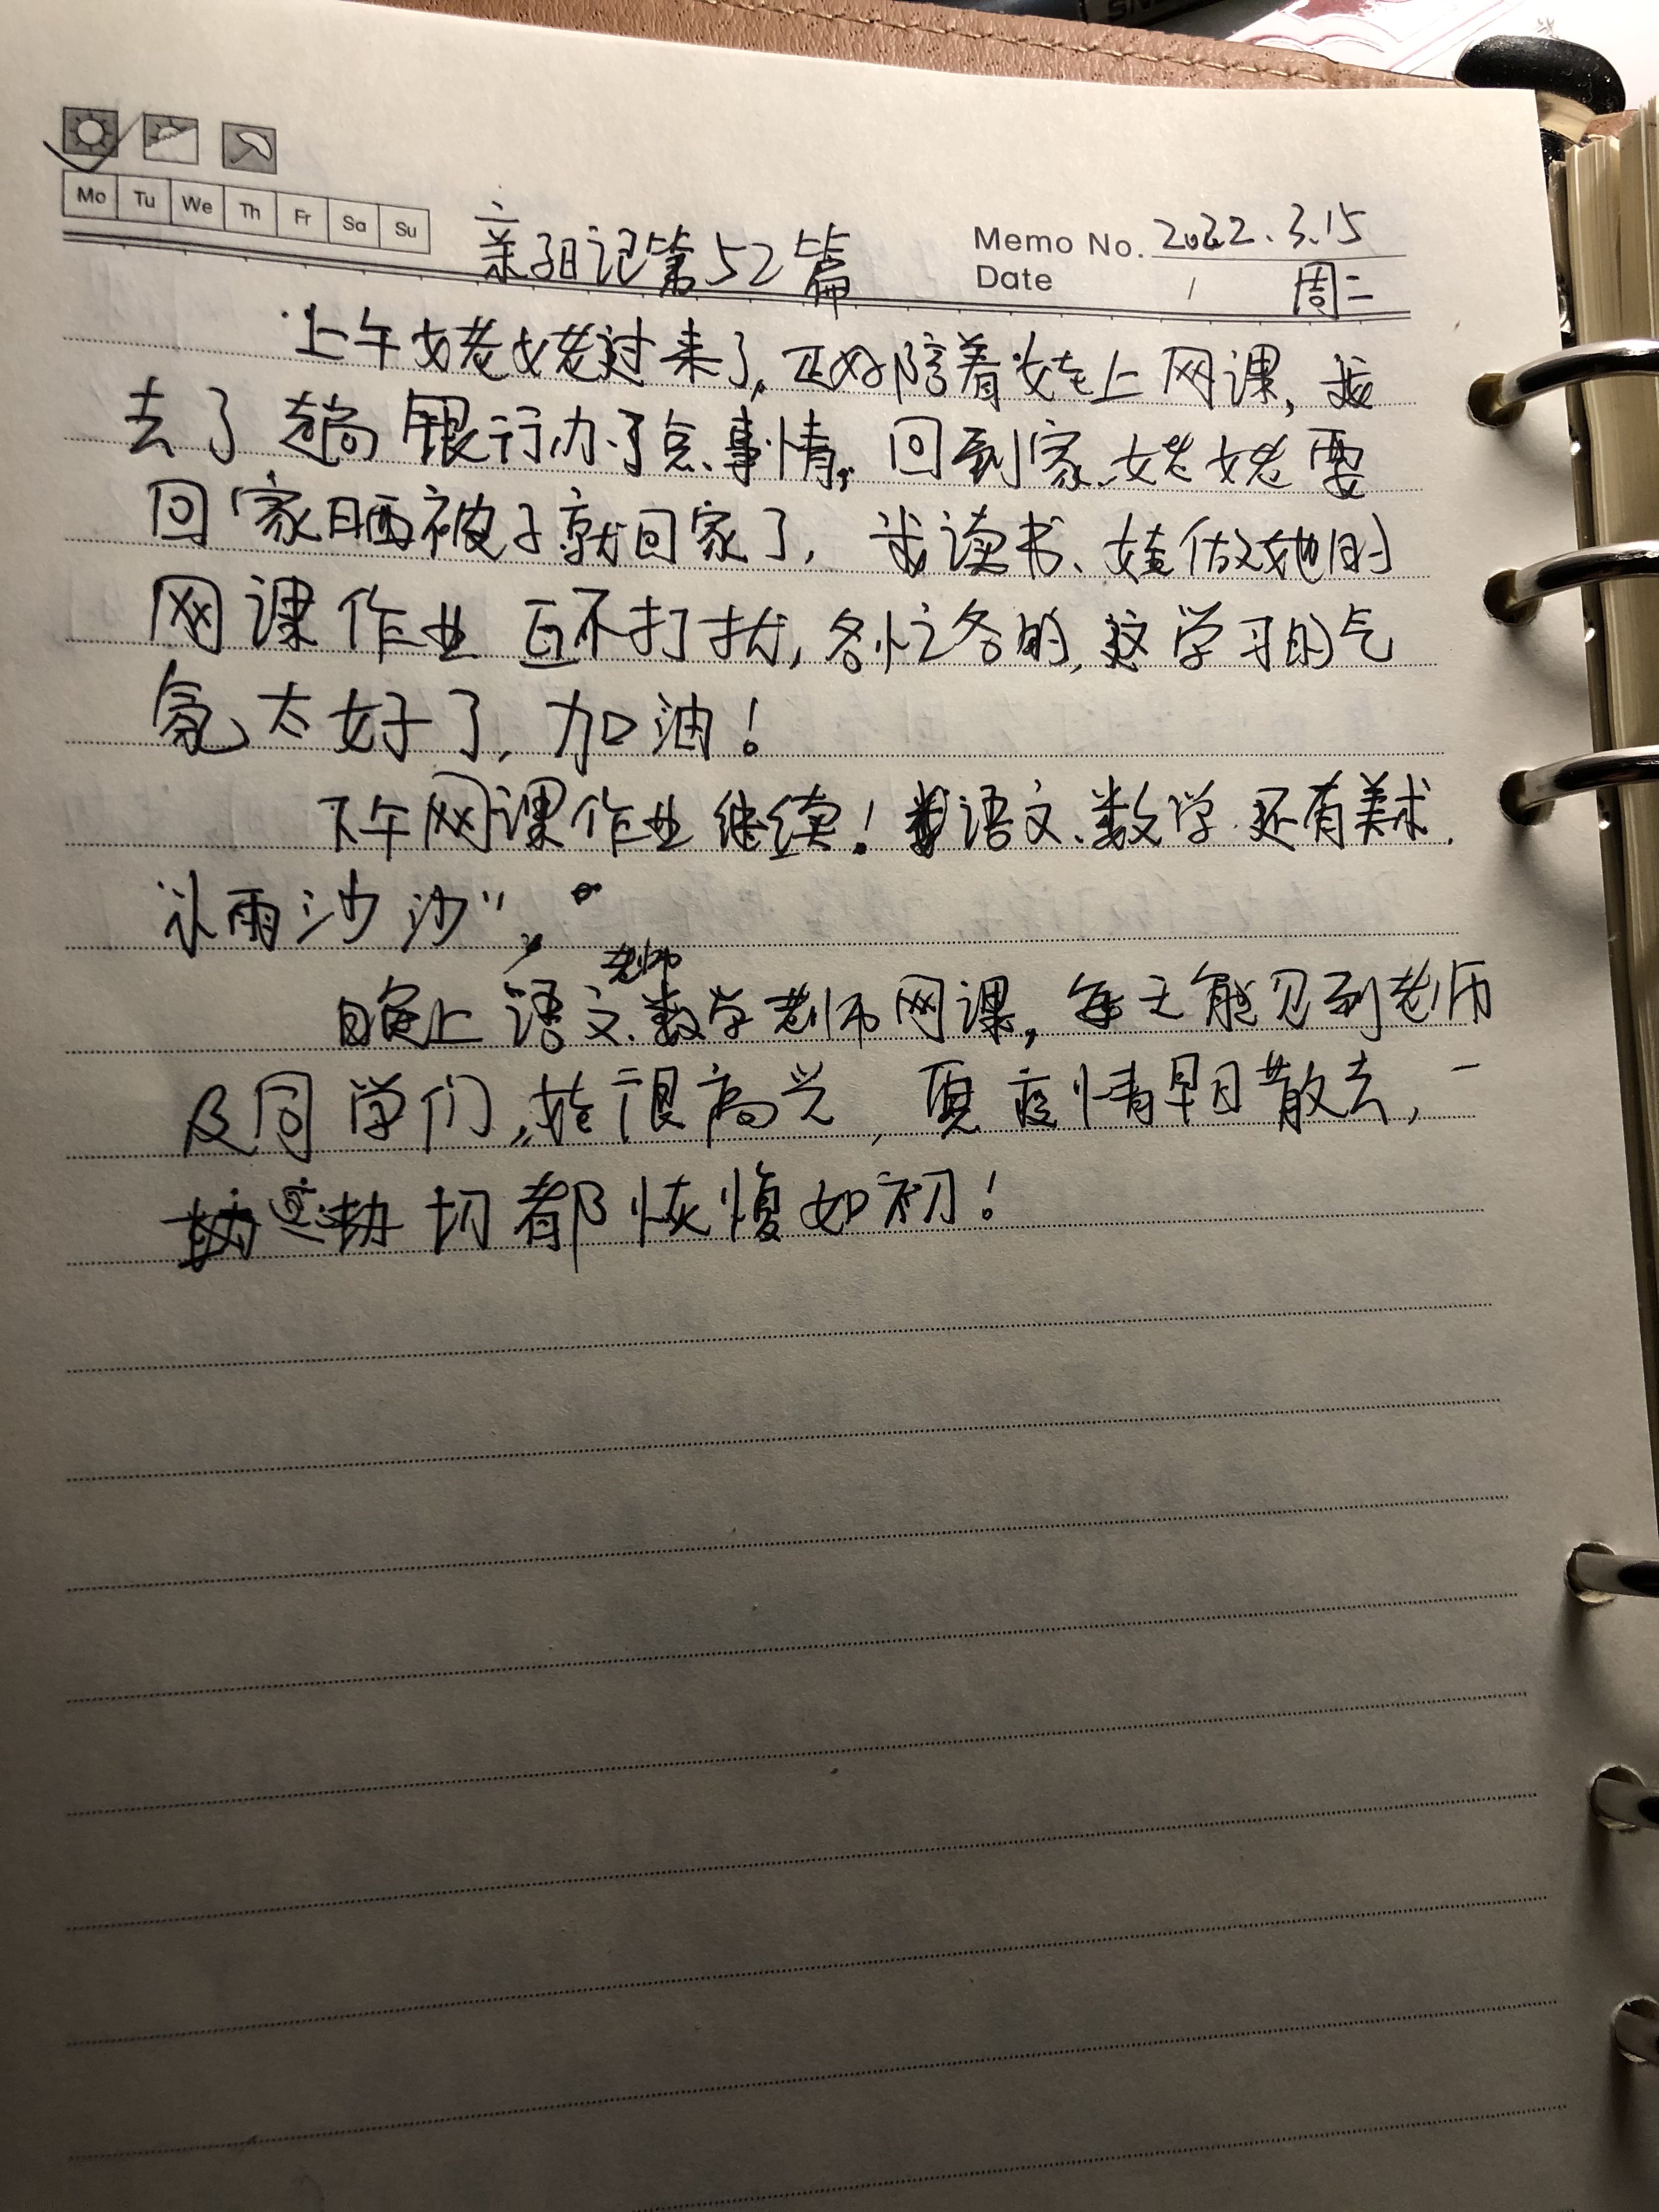 Mo Tu We Th Fr Sa Su
亲子日记第52篇
Memo No. 2022.3.15
Date / 周二
上午姥姥过来了,正好陪着娃上网课,我
去了趟银行办了点事情,回到家、姥姥要
回家晒被子就回家了,我读书、娃做她的
网课作业 互不打扰,各忙各的,这学习的气
氛太好了,加油!
下午网课作业继续!语文、数学、还有美术.
"雨沙沙"。
晚上语文老师、数学老师网课,每天能见到老师
及同学们,娃很高兴,愿疫情早日散去,一
切都恢复如初!